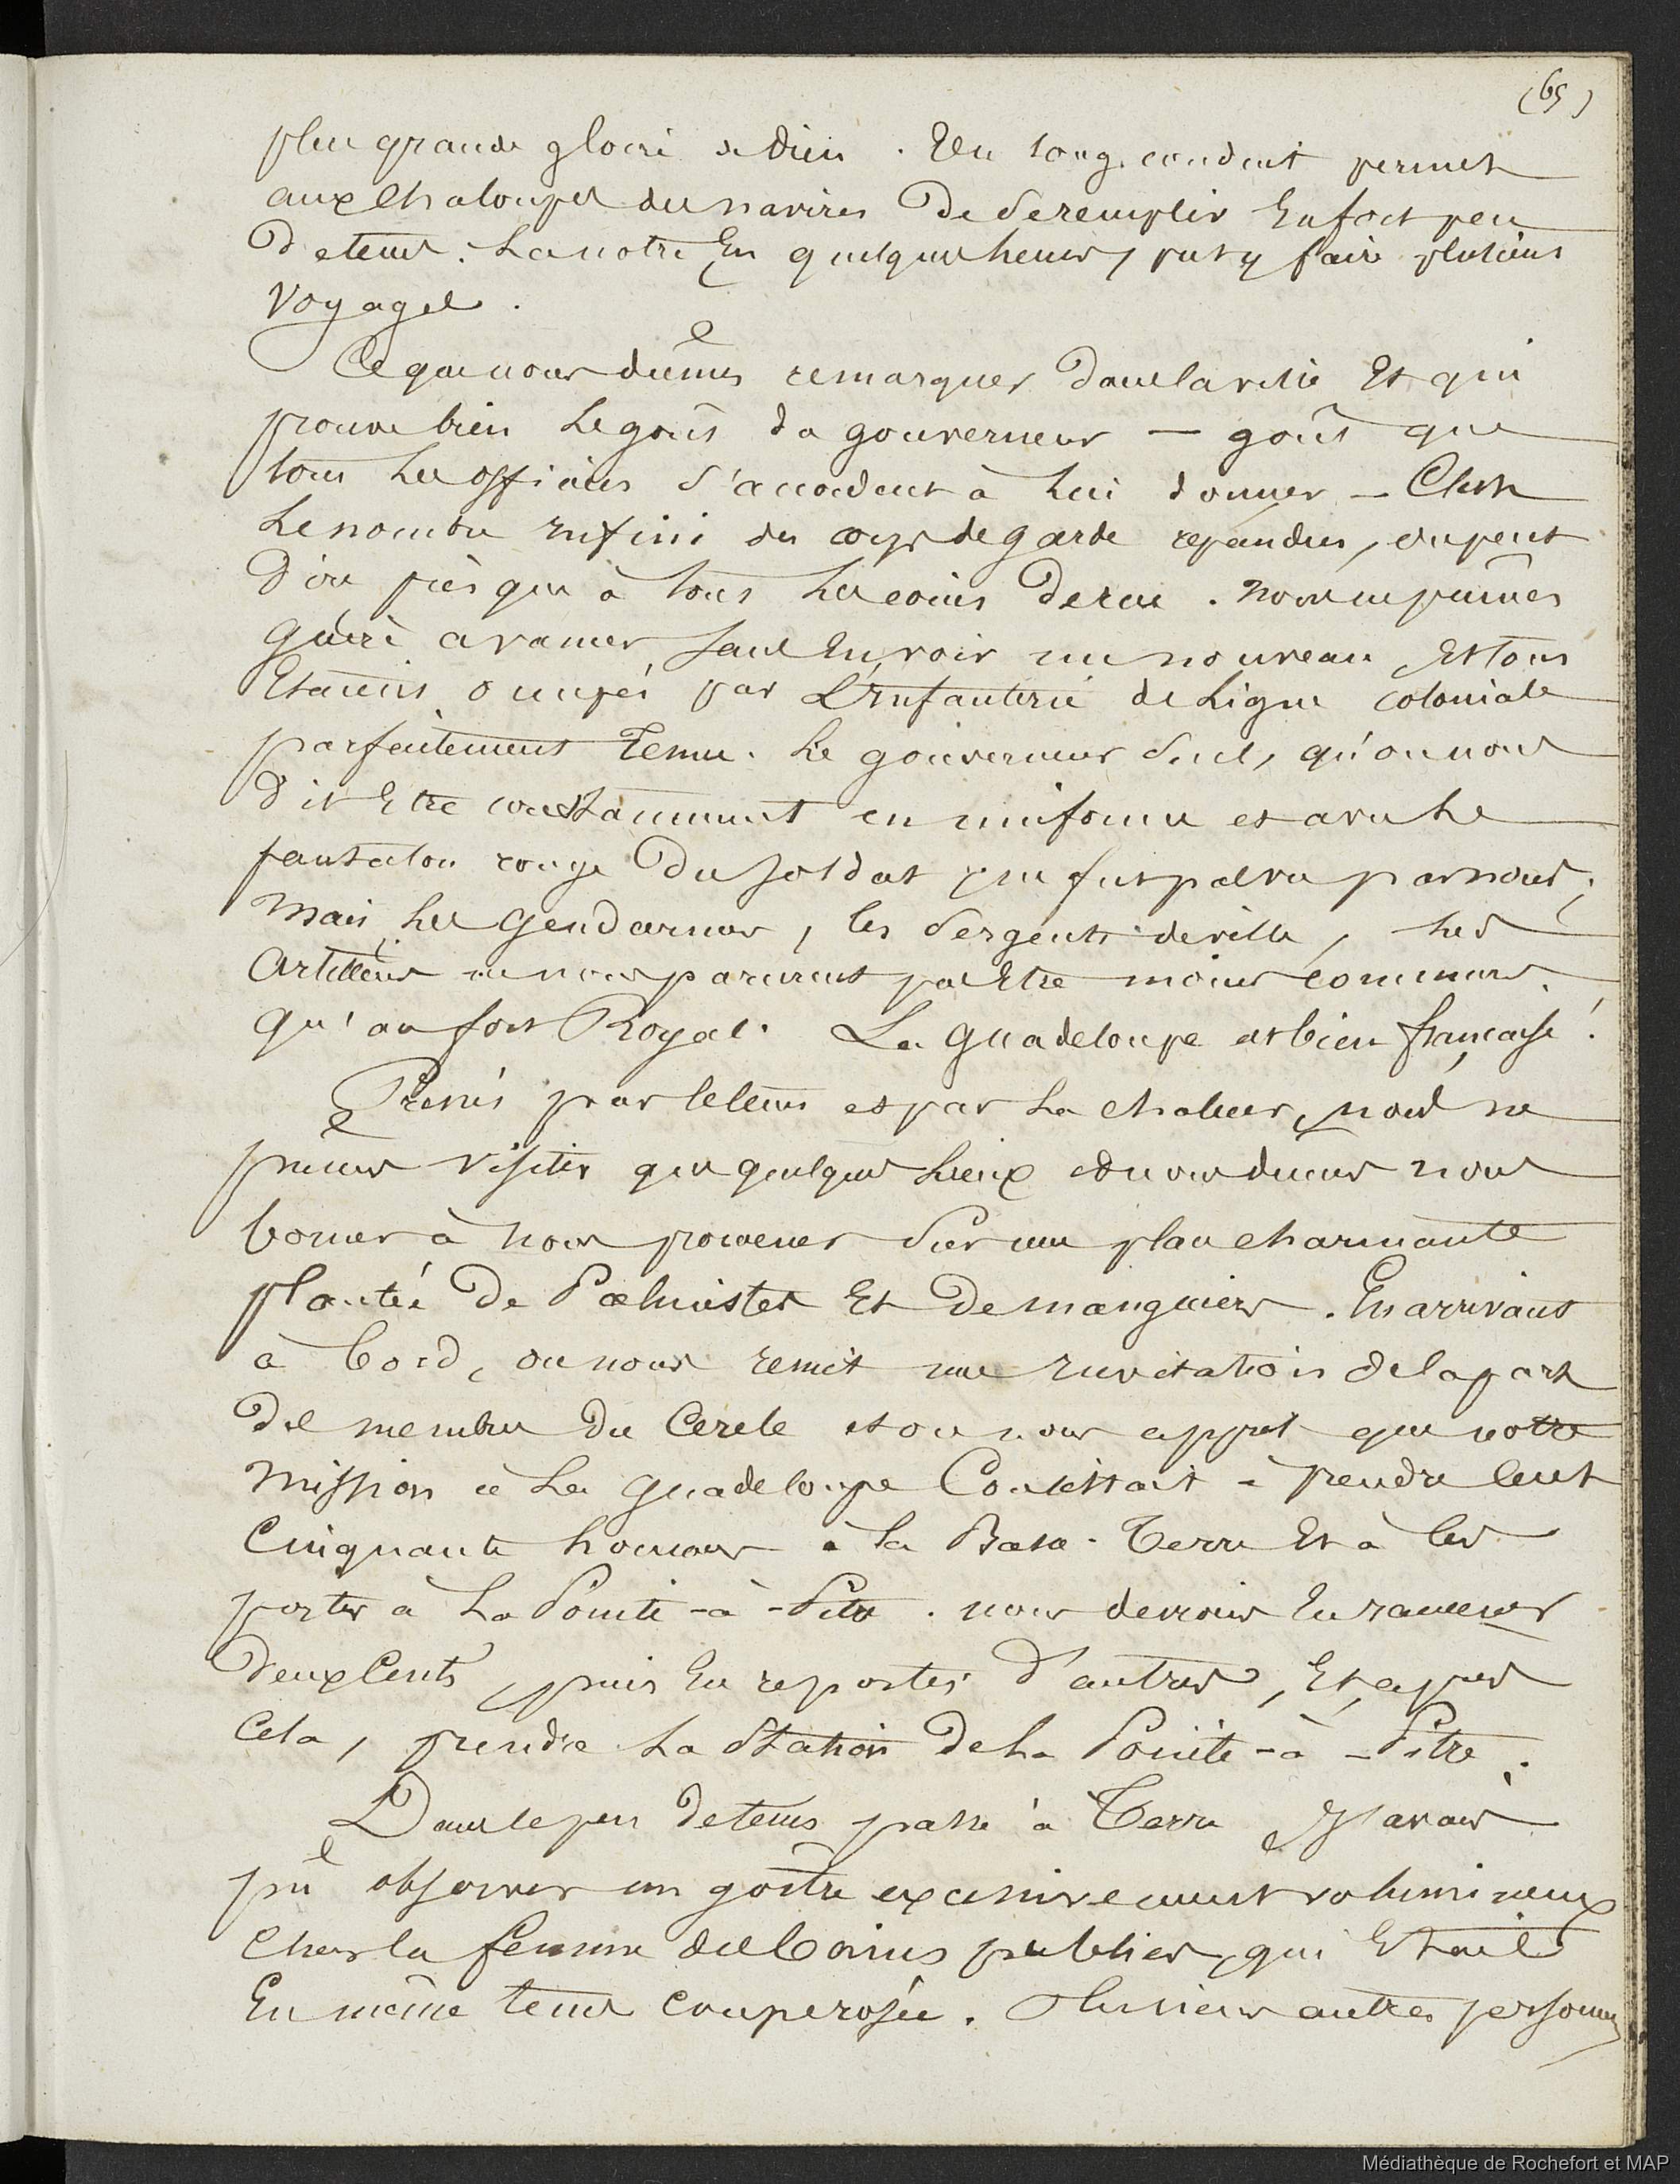 (65)
plus grande gloire de Dieu. Un long conduit permet
aux chaloupes des navires de se remplir en fort peu
de tems. La notre en quelques heures, put y faire plusieurs
voyages.
Ce que nous dûmes remarquer dans la ville et qui
prouve bien le goût du gouverneur — goût que
tous les officiers s'accordent à lui donner — C'est
le nombre infini des corps de garde répandus, on peut
dire presque à tous les coins de rue. Nous ne pûmes
guère avancer sans en voir un nouveau et tous
étaient occupés par l'Infanterie de ligne coloniale
parfaitement tenue. Le gouverneur seul, qu'on nous
dit être constamment en uniforme et avec le
pantalon rouge du soldat ne fut pas vu par nous;
mais les gendarmes, les sergents de ville, les
artilleurs ne nous parurent pas être moins communs
qu'au fort Royal. La Guadeloupe est bien française!
Pressés par le tems et par la chaleur, nous ne
pûmes visiter que quelques lieux et nous dumes nous
borner à nous promener sur une place charmante
plantée de Palmistes et de manguiers. En arrivant
à bord, on nous remit une invitation de la part
des membres du Cercle et on nous apprit que notre
mission à la Guadeloupe Consistait à prendre cent
cinquante hommes à la Basse-Terre et à les
porter à La Pointe-à-Pitre. nous devions en ramener
deux cents, puis en reporter d'autres, et après
cela, prendre la station de la Pointe-à-Pitre.
Dans le peu de tems passé à Terre j'avais
pu observer un goître excessivement volumineux
chez la femme des bains publics, qui était
en même tems couperosée. Plusieurs autres personnes
Médiathèque de Rochefort et MAP